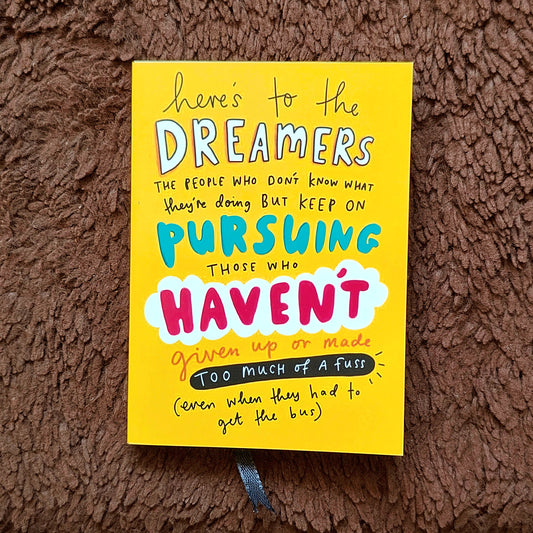 here's to the
DREAMERS
THE PEOPLE WHO DON'T KNOW WHAT
they're doing BUT KEEP ON
PURSUING
THOSE WHO
HAVEN'T
given up or made
TOO MUCH OF A FUSS
(even when they had to
get the bus)